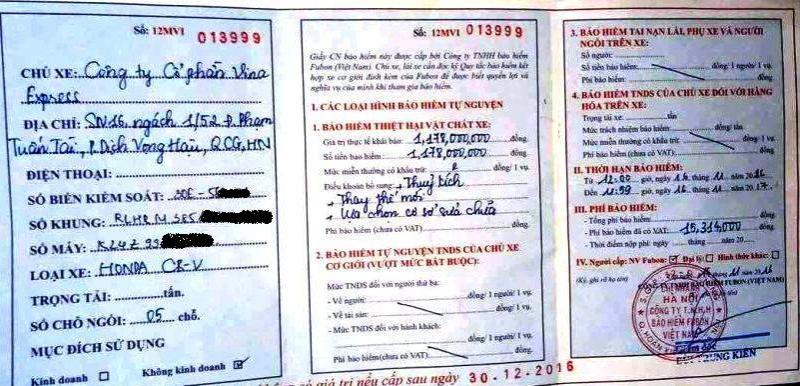 Số: 12MVI 013999
CHỦ XE: Công ty Cổ phần Vina
Express
ĐỊA CHỈ: SN 16 ngách 1/52 Đ. Phạm
Tuấn Tài, P. Dịch Vọng Hậu, Q CG, HN
ĐIỆN THOẠI:
SỐ BIỂN KIỂM SOÁT: 30E-5
SỐ KHUNG: RLHRM385
SỐ MÁY: K24Z 99
LOẠI XE: HONDA CR-V
TRỌNG TẢI: tấn.
SỐ CHỖ NGỒI: 05 chỗ.
MỤC ĐÍCH SỬ DỤNG
Kinh doanh Không kinh doanh
Số: 12MVI 013999
Giấy CN bảo hiểm này được cấp bởi Công ty TNHH bảo hiểm
Fubon (Việt Nam). Chủ xe, lái xe cần đọc kỹ Quy tắc bảo hiểm kết
hợp xe cơ giới đính kèm của Fubon để được biết quyền lợi và
nghĩa vụ của mình khi tham gia bảo hiểm.
I. CÁC LOẠI HÌNH BẢO HIỂM TỰ NGUYỆN
1. BẢO HIỂM THIỆT HẠI VẬT CHẤT XE:
Giá trị thực tế khai báo: 1,178,000,000 đồng.
Số tiền bảo hiểm: 1,178,000,000 đồng.
Mức miễn thường có khấu trừ: đồng.
Điều khoản bổ sung: + Thuỷ kích
+ Thay thế mới
+ Lựa chọn cơ sở sửa chữa
Phí bảo hiểm (chưa có VAT): đồng.
2. BẢO HIỂM TỰ NGUYỆN TNDS CỦA CHỦ XE
CƠ GIỚI (VƯỢT MỨC BẮT BUỘC):
Mức TNDS đối với người thứ ba:
- Về người: đồng/ 1 người/ 1 vụ.
- Về tài sản: đồng/ 1 vụ.
- Mức TNDS đối với hành khách:
đồng/ 1 người/ 1 vụ.
Phí bảo hiểm(chưa có VAT) đồng.
3. BẢO HIỂM TAI NẠN LÁI, PHỤ XE VÀ NGƯỜI
NGỒI TRÊN XE:
Số người:
Số tiền bảo hiểm: đồng/ 1 người/ 1 vụ.
Phí bảo hiểm: đồng.
4. BẢO HIỂM TNDS CỦA CHỦ XE ĐỐI VỚI HÀNG
HÓA TRÊN XE:
Trọng tải xe: tấn
Mức trách nhiệm bảo hiểm: đồng/ tấn.
Mức miễn thường có khấu trừ: đồng/ 1 vụ.
Phí bảo hiểm (chưa có VAT): đồng.
II. THỜI HẠN BẢO HIỂM
Từ 12:00 giờ, ngày 16 tháng 11 năm 2016
Đến 11:59 giờ, ngày 16 tháng 11 năm 2017.
III. PHÍ BẢO HIỂM:
- Tổng phí bảo hiểm: đồng.
- Phí bảo hiểm đã có VAT: 15,314,000 đồng.
- Thời điểm nộp phí: ngày tháng năm 20
IV. Người cấp: NV Fubon: Đại lý: Hình thức khác:
(Ký, ghi rõ họ tên) tháng 11 năm 2016
CÔNG TY TNHH BẢO HIỂM FUBON(VIỆT NAM)
CHI NHÁNH
HÀ NỘI
CÔNG TY T.N.H.H
BẢO HIỂM FUBON
VIỆT NAM
BÙI TRUNG KIÊN
có giá trị nếu cấp sau ngày 30-12-2016